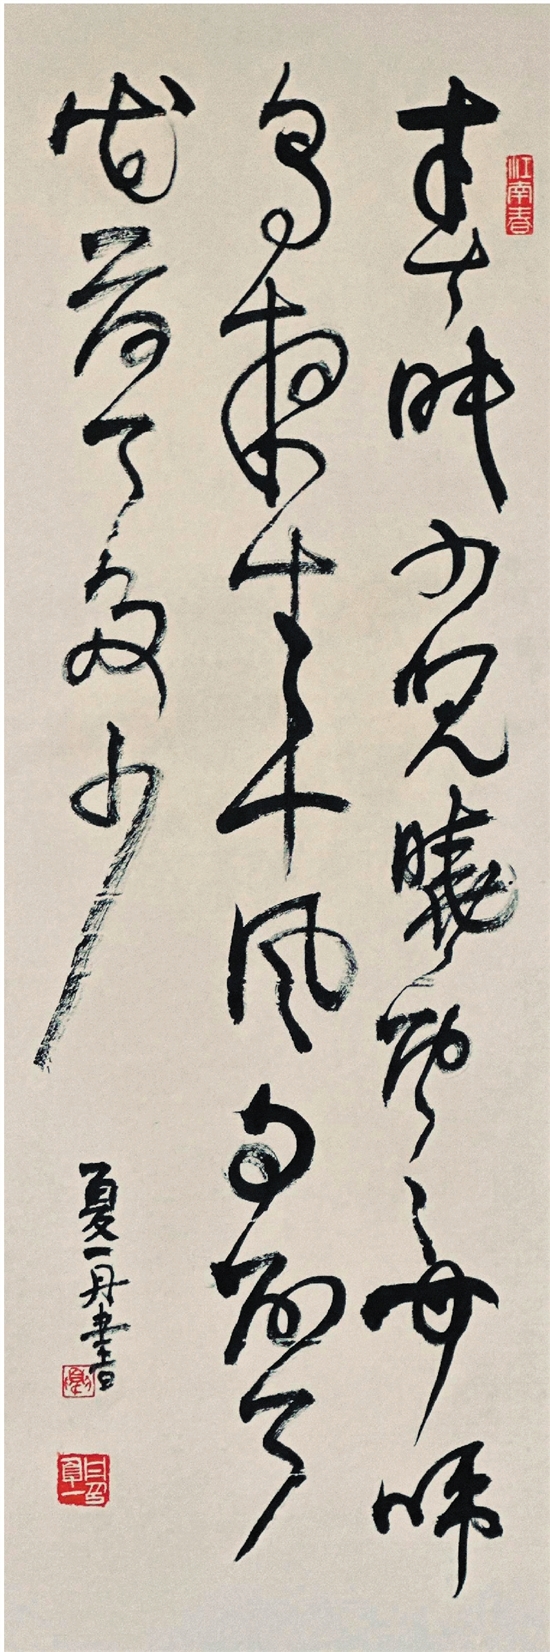 江南春
春眠不覺曉處啼
鳥來風雨
花落知多少
夏一丹書